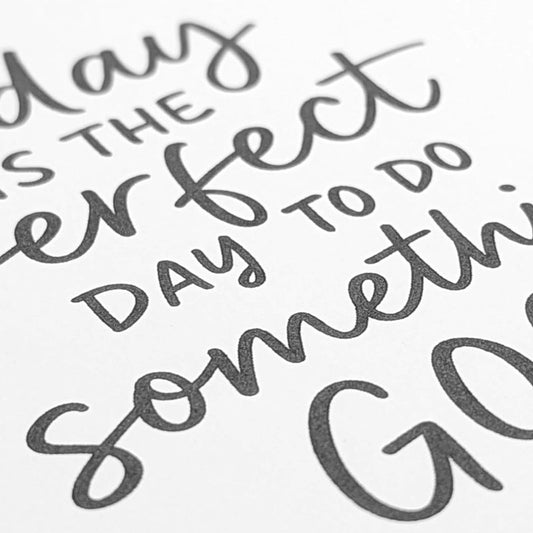 day
IS THE
erfect
DAY TO DO
somethi
GO